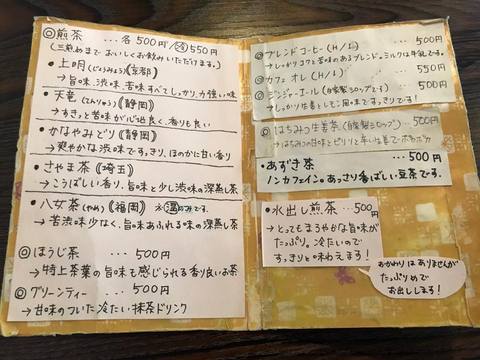 ◎煎茶 ... 各500円/冷550円
(三煎めまでおいしくお飲みいただけます。)
・上明(じょうみょう)《京都》
→旨味、渋味、苦味すべてしっかり、力強い味
・天竜(てんりゅう)《静岡》
→すきっと苦味が心地良く、香りも良い
・かなやみどり《静岡》
→爽やかな渋味ですっきり、ほのかに甘い香り
・さやま茶《埼玉》
→こうばしい香り、旨味と少し渋味の深蒸し茶
・八女茶(やめ)《福岡》 のみです。
→苦渋味少なく、旨味あふれる味の深蒸し茶
◎ほうじ茶 ... 500円
→特上茶葉の旨味も感じられる香り良いお茶
◎グリーンティー ... 500円
→甘味のついた冷たい抹茶ドリンク
◎ブレンドコーヒー(H/I) 500円
→しっかりコクと苦味のあるブレンド。ミルクは牛乳です。
◎カフェオレ(H/I) ... 550円
◎ジンジャーエール(自家製シロップです) 500円
→しっかり生姜としてモ風味ですっきりです!
◎はちみつ生姜茶(自家製シロップ) ... 500円
→はちみつの甘味とピリリと辛い生姜でポカポカ
・あずき茶 ... 500円
ノンカフェイン。あっさり香ばしい豆茶です。
・水出し煎茶 ... 500円
→とってもまろやかな旨味が
たっぷり。冷たいので
すっきりと味わえます!
おかわりはありませんが
たっぷりめで
お出しします!